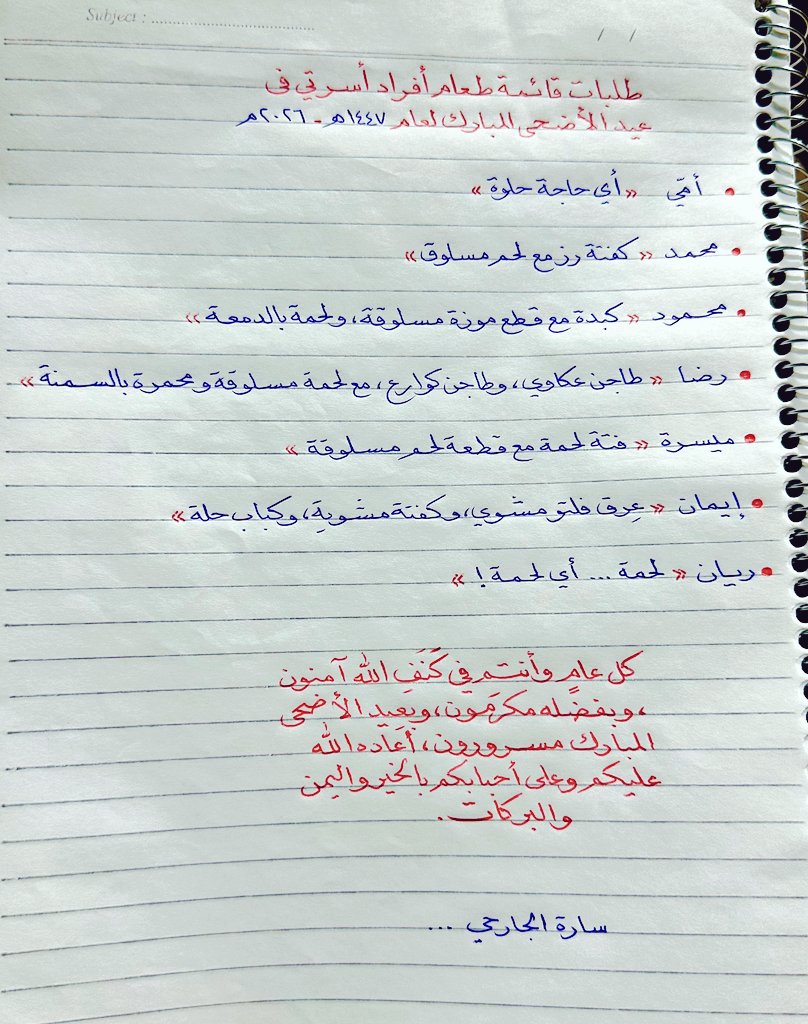 Subject : ......................................
/ /
طلبات قائمة طعام أفراد أسرتي في
عيد الأضحى المبارك لعام ١٤٤٧هـ - ٢٠٢٦م
• أمّي «أي حاجة حلوة»
• محمد «كفتة رز مع لحم مسلوق»
• محمود «كبدة مع قطع موزة مسلوقة، ولحمة بالدمعة»
• رضا «طاجن عكاوي، وطاجن كوارع، مع لحمة مسلوقة ومحمرة بالسمنة»
• ميسرة «فتة لحمة مع قطعة لحم مسلوقة»
• إيمان «عِرق فلتو مشوي، وكفتة مشوية، وكباب حلة»
• ريان «لحمة ... أي لحمة !»
كل عام وأنتم في كَنَفِ الله آمنون
، وبفضله مكرَمون، وبعيد الأضحى
المبارك مسرورون، أعَاده الله
عليكم وعلى أحبابكم بالخير واليمن
والبركات.
سارة الجارحي ...